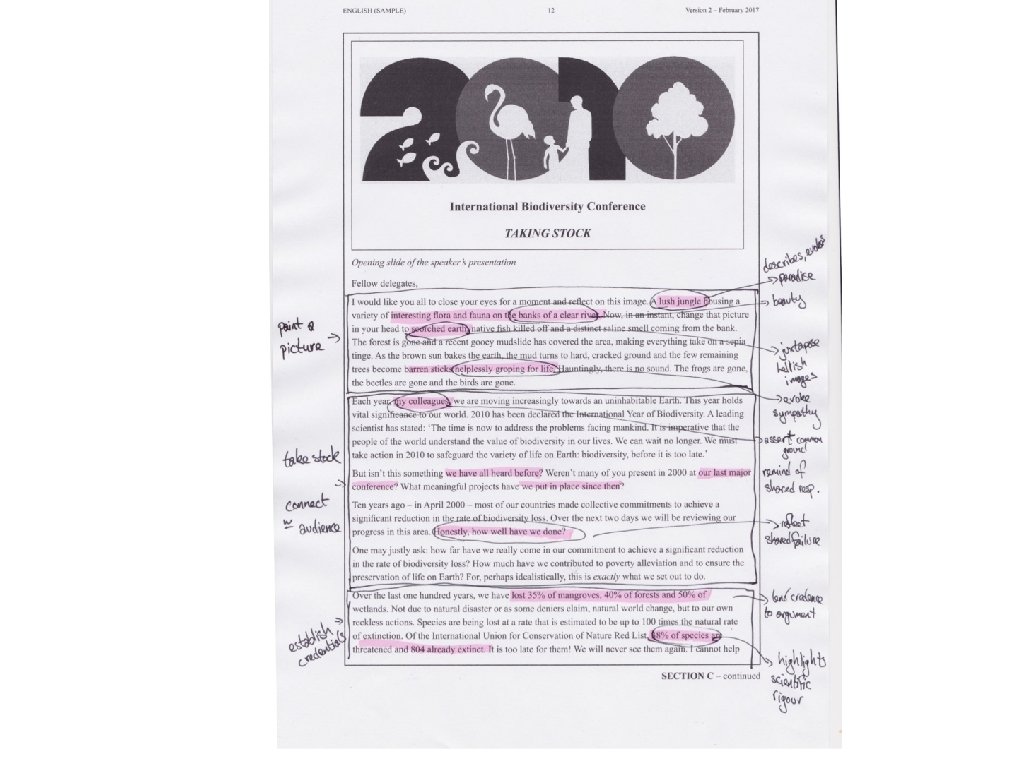 ENGLISH (SAMPLE) 12 Version 2 – February 2017
2010
International Biodiversity Conference
TAKING STOCK
Opening slide of the speaker's presentation
Fellow delegates,
I would like you all to close your eyes for a moment and reflect on this image. A lush jungle housing a
variety of interesting flora and fauna on the banks of a clear river. Now, in an instant, change that picture
in your head to scorched earth, native fish killed off and a distinct saline smell coming from the bank.
The forest is gone and a recent gooey mudslide has covered the area, making everything take on a sepia
tinge. As the brown sun bakes the earth, the mud turns to hard, cracked ground and the few remaining
trees become barren sticks helplessly groping for life. Hauntingly, there is no sound. The frogs are gone,
the beetles are gone and the birds are gone.
Each year, my colleagues, we are moving increasingly towards an uninhabitable Earth. This year holds
vital significance to our world. 2010 has been declared the International Year of Biodiversity. A leading
scientist has stated: 'The time is now to address the problems facing mankind. It is imperative that the
people of the world understand the value of biodiversity in our lives. We can wait no longer. We must
take action in 2010 to safeguard the variety of life on Earth: biodiversity, before it is too late.'
But isn't this something we have all heard before? Weren't many of you present in 2000 at our last major
conference? What meaningful projects have we put in place since then?
Ten years ago – in April 2000 – most of our countries made collective commitments to achieve a
significant reduction in the rate of biodiversity loss. Over the next two days we will be reviewing our
progress in this area. Honestly, how well have we done?
One may justly ask: how far have we really come in our commitment to achieve a significant reduction
in the rate of biodiversity loss? How much have we contributed to poverty alleviation and to ensure the
preservation of life on Earth? For, perhaps idealistically, this is exactly what we set out to do.
Over the last one hundred years, we have lost 35% of mangroves, 40% of forests and 50% of
wetlands. Not due to natural disaster or as some deniers claim, natural world change, but to our own
reckless actions. Species are being lost at a rate that is estimated to be up to 100 times the natural rate
of extinction. Of the International Union for Conservation of Nature Red List, 38% of species are
threatened and 804 already extinct. It is too late for them! We will never see them again. I cannot help
SECTION C – continued
paint a
picture
take stock
connect
w audience
establish
credentials
describes, evokes
paradise
beauty
juxtapose
hellish
images
evoke
sympathy
assert common
ground
remind of
shared resp.
reflect
shared failure
lend credence
to argument
highlights
scientific
rigour